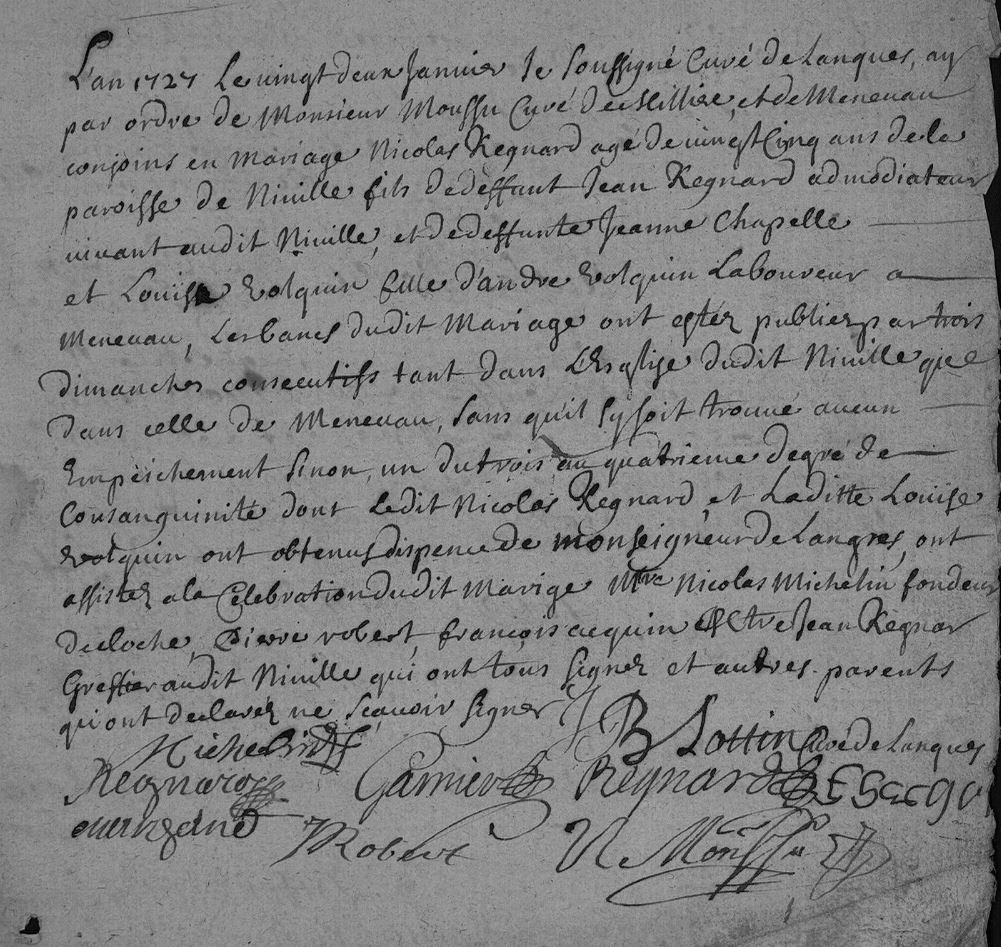 L'an 1727 Le vingt deux Janvier Je soussigné Curé de Lanques, ay
par ordre de Monsieur Moussu Curé de et de Meneuau
conjoins en mariage Nicolas Regnard agé de vingt Cinq ans de la
paroisse de Niuille fils de deffunt Jean Regnard admodiateur
viuant audit Niuille, et de deffunte Jeanne Chapelle
et Louise Volquin fille d'andre Volquin Laboureur a
Meneuau, Les bancs dudit Mariage ont estez publiez par trois
dimanches consecutifs tant dans L'Esglise dudit Niuille que
dans celle de Meneuau, sans qu'il sy soit trouvé aucun
Empeichement sinon, un du trois au quatrieme degré de
Consanguinité dont Ledit Nicolas Regnard, et Laditte Louise
volquin ont obtenus dispence de monseigneur de Langres, ont
assistez a la Celebration dudit Marige Mtre Nicolas Michelin fondeur
de cloche, Pierre robert, françois acquin Jean Regnar
Greffier audit Niuille qui ont tous signez et autres parents
qui ont declarez ne scauoir signer
B Lottin Curé de Lanques
Michelin
Regnard Garnier Regnard
Robert N Moussu